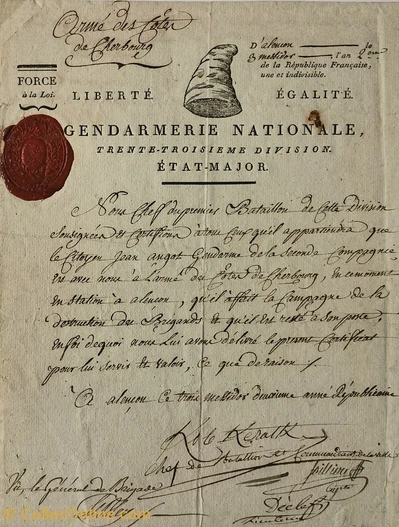 Armé des Côtes
de Cherbourg
D'alençon
3 messidor l'an 2
de la République Française,
une et indivisible.
FORCE
à la Loi.
LIBERTÉ. ÉGALITÉ.
GENDARMERIE NATIONALE,
TRENTE-TROISIEME DIVISION.
ÉTAT-MAJOR.
Nous Cheff du premier Bataillon de Cette Division
Soussignés et Certifions a tous Ceux qu'il appartiendra que
le Citoyen Jean angot Gendarme de la Seconde Compagnie
est avec nous a l'armé des Côtes de Cherbourg, En cemoment
En Station a alençon, qu'il affait la Campagne de la
destruction des Brigands et qu'il Est resté a Son poste,
En foi de quoi nous Lui avons délivré le present Certificat
pour lui servir et valoir, ce que de raison /.
a alençon ce trois messidor deuxieme année Républicaine
Chef de Bataillon et Commandant
Vu, le Général de Brigade